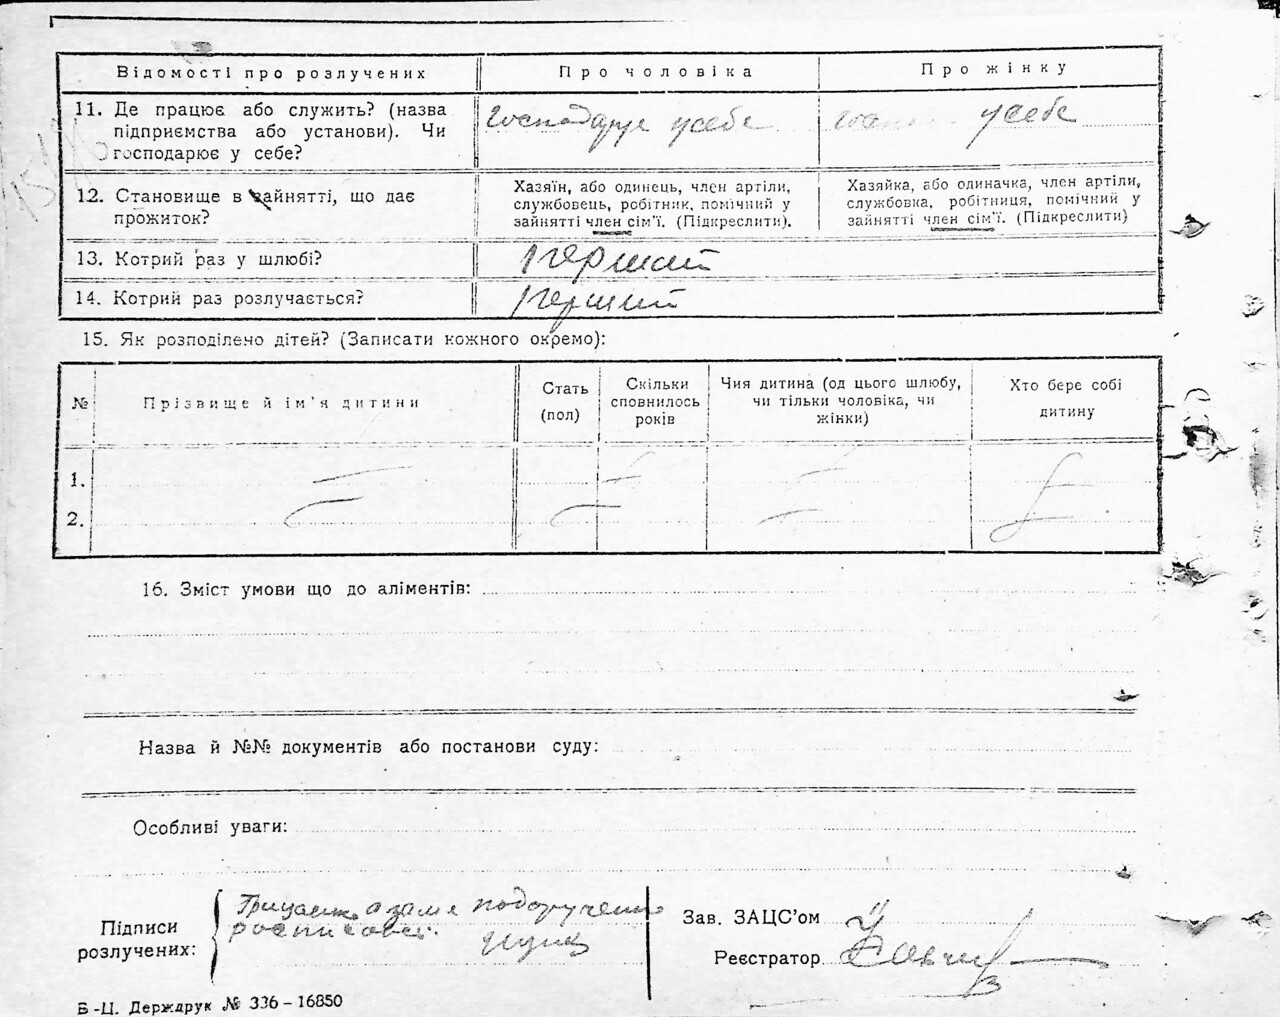 Відомості про розлучених
Про чоловіка
Про жінку
11. Де працює або служить? (назва
підприємства або установи). Чи
господарює у себе?
господарує усебе
усебе
12. Становище в зайнятті, що дає
прожиток?
Хазяїн, або одинець, член артіли,
службовець, робітник, помічний у
зайнятті член сім'ї. (Підкреслити).
Хазяйка, або одиначка, член артіли,
службовка, робітниця, помічний у
зайнятті член сім'ї. (Підкреслити)
13. Котрий раз у шлюбі?
перший
14. Котрий раз розлучається?
перший
15. Як розподілено дітей? (Записати кожного окремо):
№
Прізвище й ім'я дитини
Стать
(пол)
Скільки
сповнилось
років
Чия дитина (од цього шлюбу,
чи тільки чоловіка, чи
жінки)
Хто бере собі
дитину
1.
2.
16. Зміст умови що до аліментів:
Назва й №№ документів або постанови суду:
Особливі уваги:
Підписи
розлучених:
Зав. ЗАЦС'ом
Реєстратор
Б-Ц. Держдрук № 336-16850